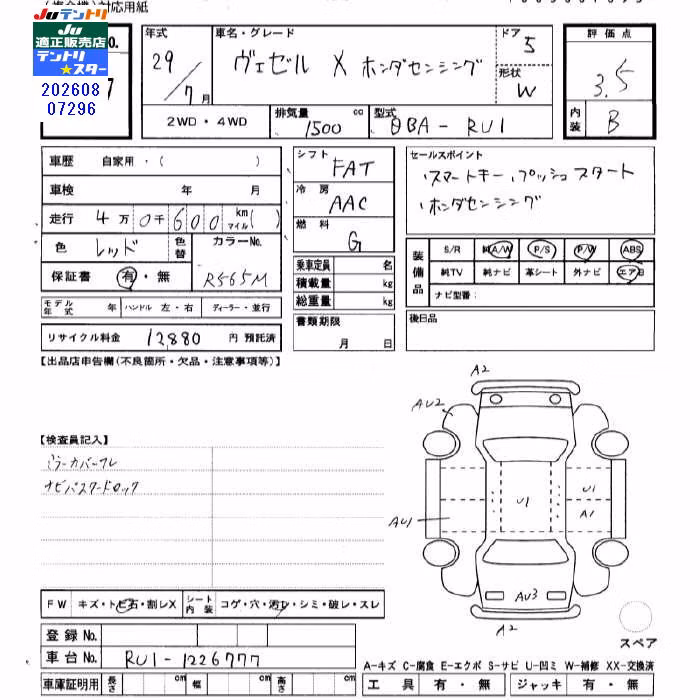 対応用紙
Juテントリ
Ju適正販売店
テントリ★スター
202608
07296
No.
7
年式 29/7月
車名・グレード ヴェゼル X ホンダセンシング
ドア 5
形状 W
評価点 3.5
内装 B
2WD・4WD
排気量 1500 cc
型式 DBA-RU1
車歴 自家用・( )
車検 年 月
走行 4万0千600 km マイル( )
色 レッド 色替 カラーNo. R565M
保証書 有・無
モデル年式 年 ハンドル 左・右 ディーラー・並行
リサイクル料金 12,880 円 預託済
シフト FAT
冷房 AAC
燃料 G
乗車定員 名
積載量 kg
総重量 kg
書類期限
月 日
セールスポイント
スマートキー プッシュスタート
ホンダセンシング
装備品 S/R 純A/W P/S P/W ABS
純TV 純ナビ 革シート 外ナビ エアB
ナビ型番:
後日品
【出品店申告欄(不良箇所・欠品・注意事項等)】
【検査員記入】
ミラーカバーワレ
ナビパスワードロック
FW キズ・トビ石・割レX シート内装 コゲ・穴・汚レ・シミ・破レ・スレ
登録No.
車台No. RU1-1226777
車庫証明用 長さ cm 幅 cm 高さ cm
A2
AU2
U1
U1
A1
AU1
AU3
A2
スペア
A-キズ C-腐食 E-エクボ S-サビ U-凹ミ W-補修 XX-交換済
工具 有・無 ジャッキ 有・無